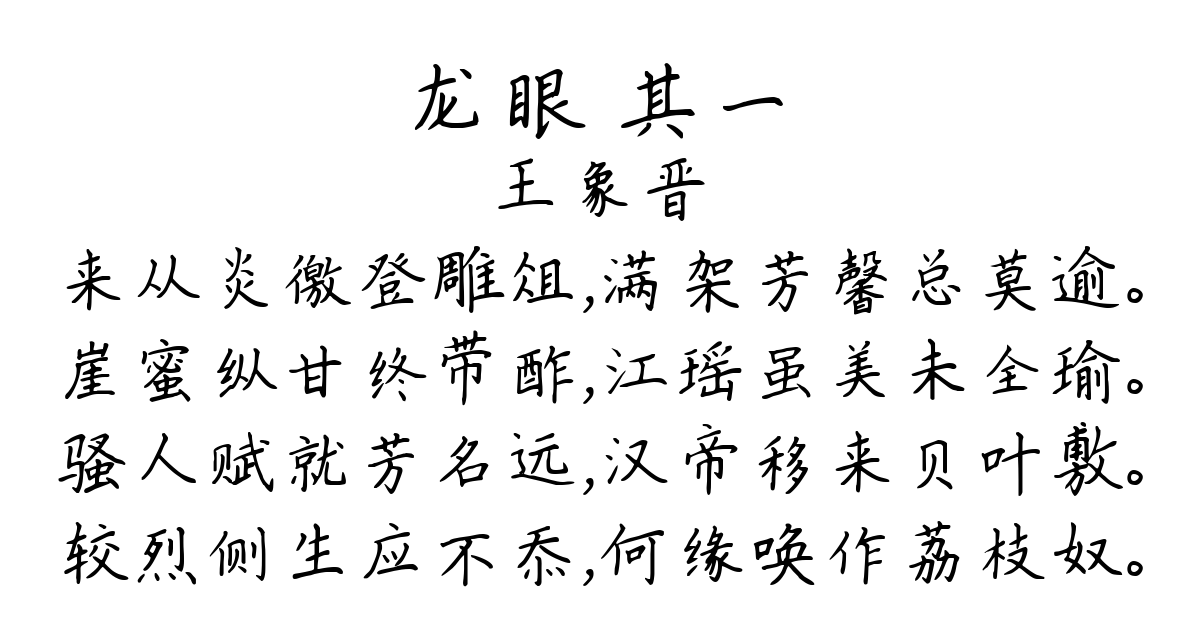 龙眼 其一
王象晋
来从炎徼登雕俎,满架芳馨总莫逾。
崖蜜纵甘终带酢,江瑶虽美未全瑜。
骚人赋就芳名远,汉帝移来贝叶敷。
较烈侧生应不忝,何缘唤作荔枝奴。